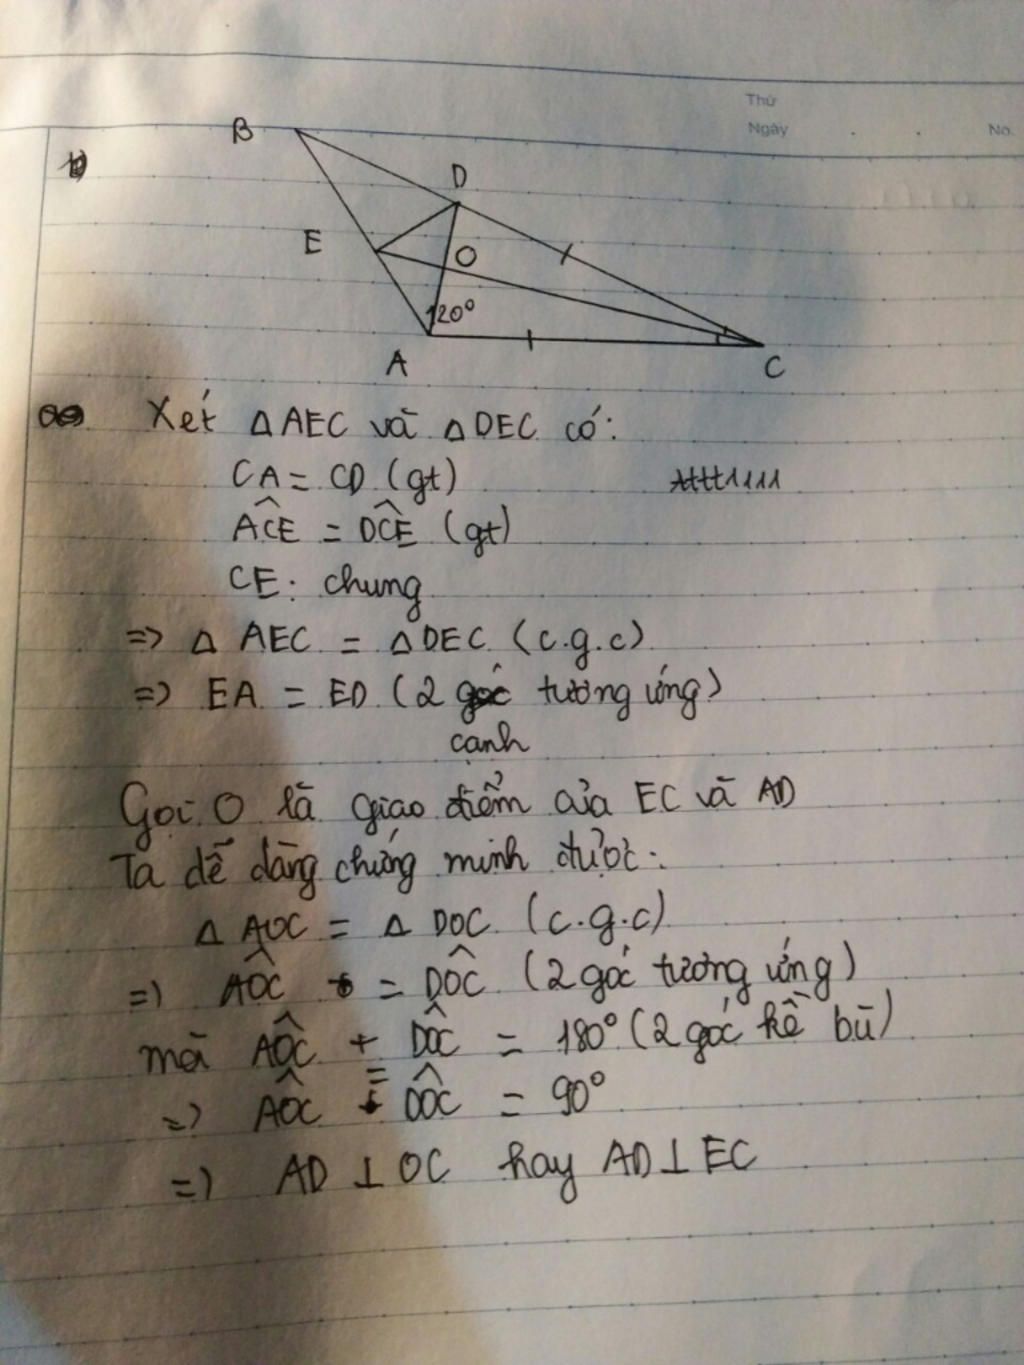 Thứ
Ngày
No.
B
D
E
O
120°
A
C
Xét ΔAEC và ΔDEC có:
CA = CD (gt)
ACE = DCE (gt)
CE: chung
=> Δ AEC = ΔDEC (c.g.c)
=> EA = ED (2 góc tương ứng)
cạnh
Gọi O là giao điểm của EC và AD
Ta dễ dàng chứng minh được:
Δ AOC = Δ DOC (c.g.c)
=> AOC = DOC (2 góc tương ứng)
mà AOC + DOC = 180° (2 góc kề bù)
=> AOC = DOC = 90°
=> AD ⊥ OC hay AD ⊥ EC